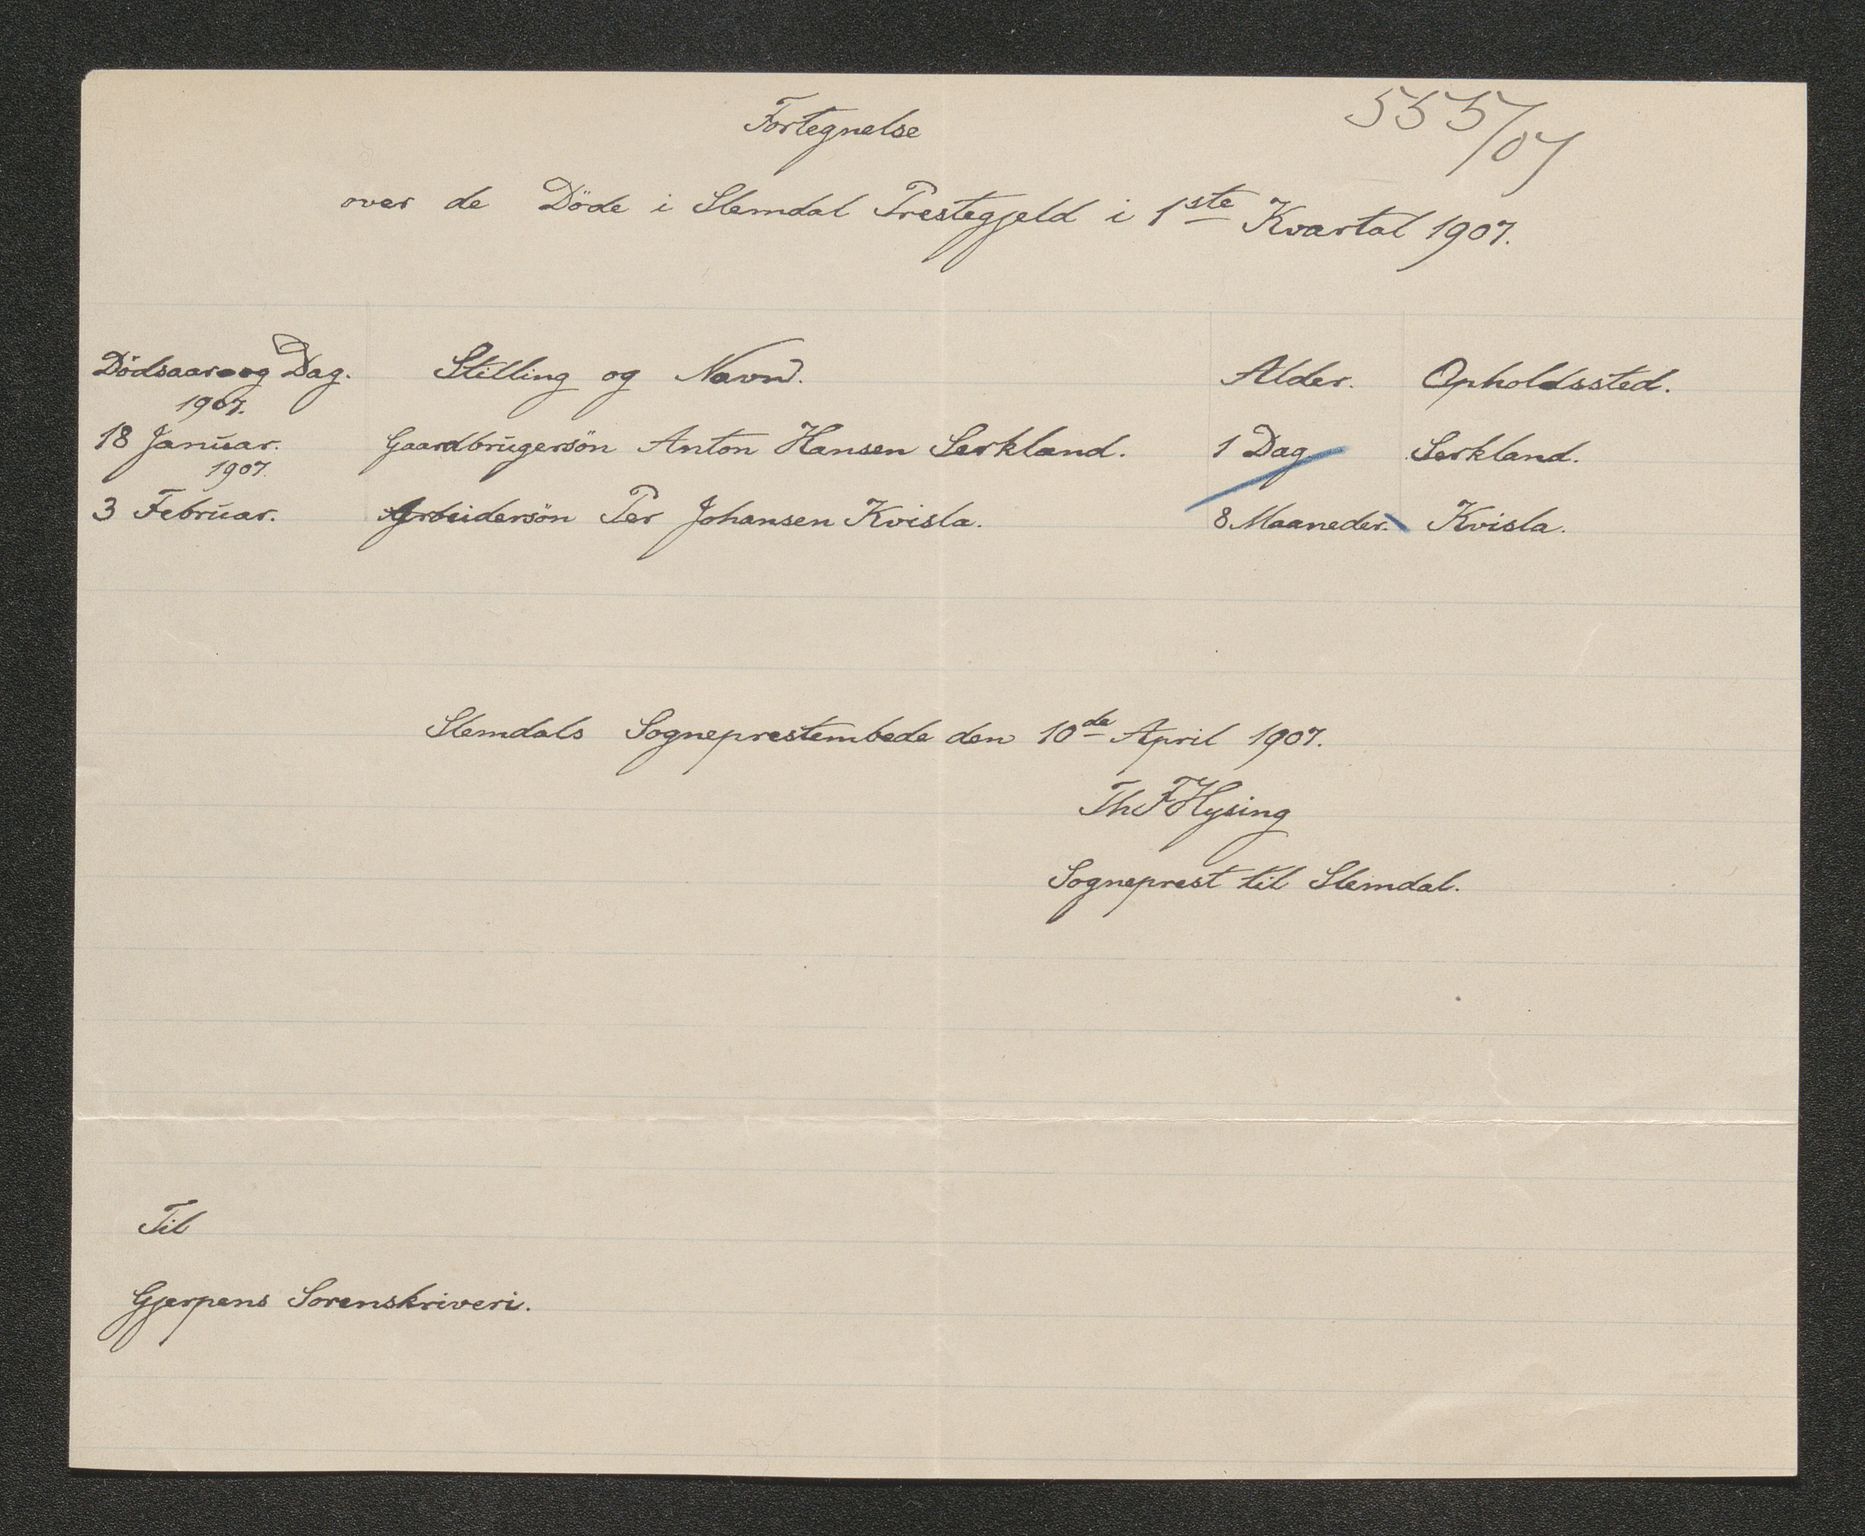 Fortegnelse
555/07
over de Döde i Slemdal Prestegjeld i 1ste Kvartal 1907.
Dödsaar og Dag. Stilling og Navn. Alder. Opholdssted.
1907.
18 Januar. Gaardbrugersön Anton Hansen Serkland. 1 Dag Serkland.
1907.
3 Februar. Arbeidersön Per Johansen Kvisla. 8 Maaneder. Kvisla.
Slemdals Sogneprestembede den 10de April 1907.
Th F Hysing
Sogneprest til Slemdal.
Til
Gjerpens Sorenskriveri.